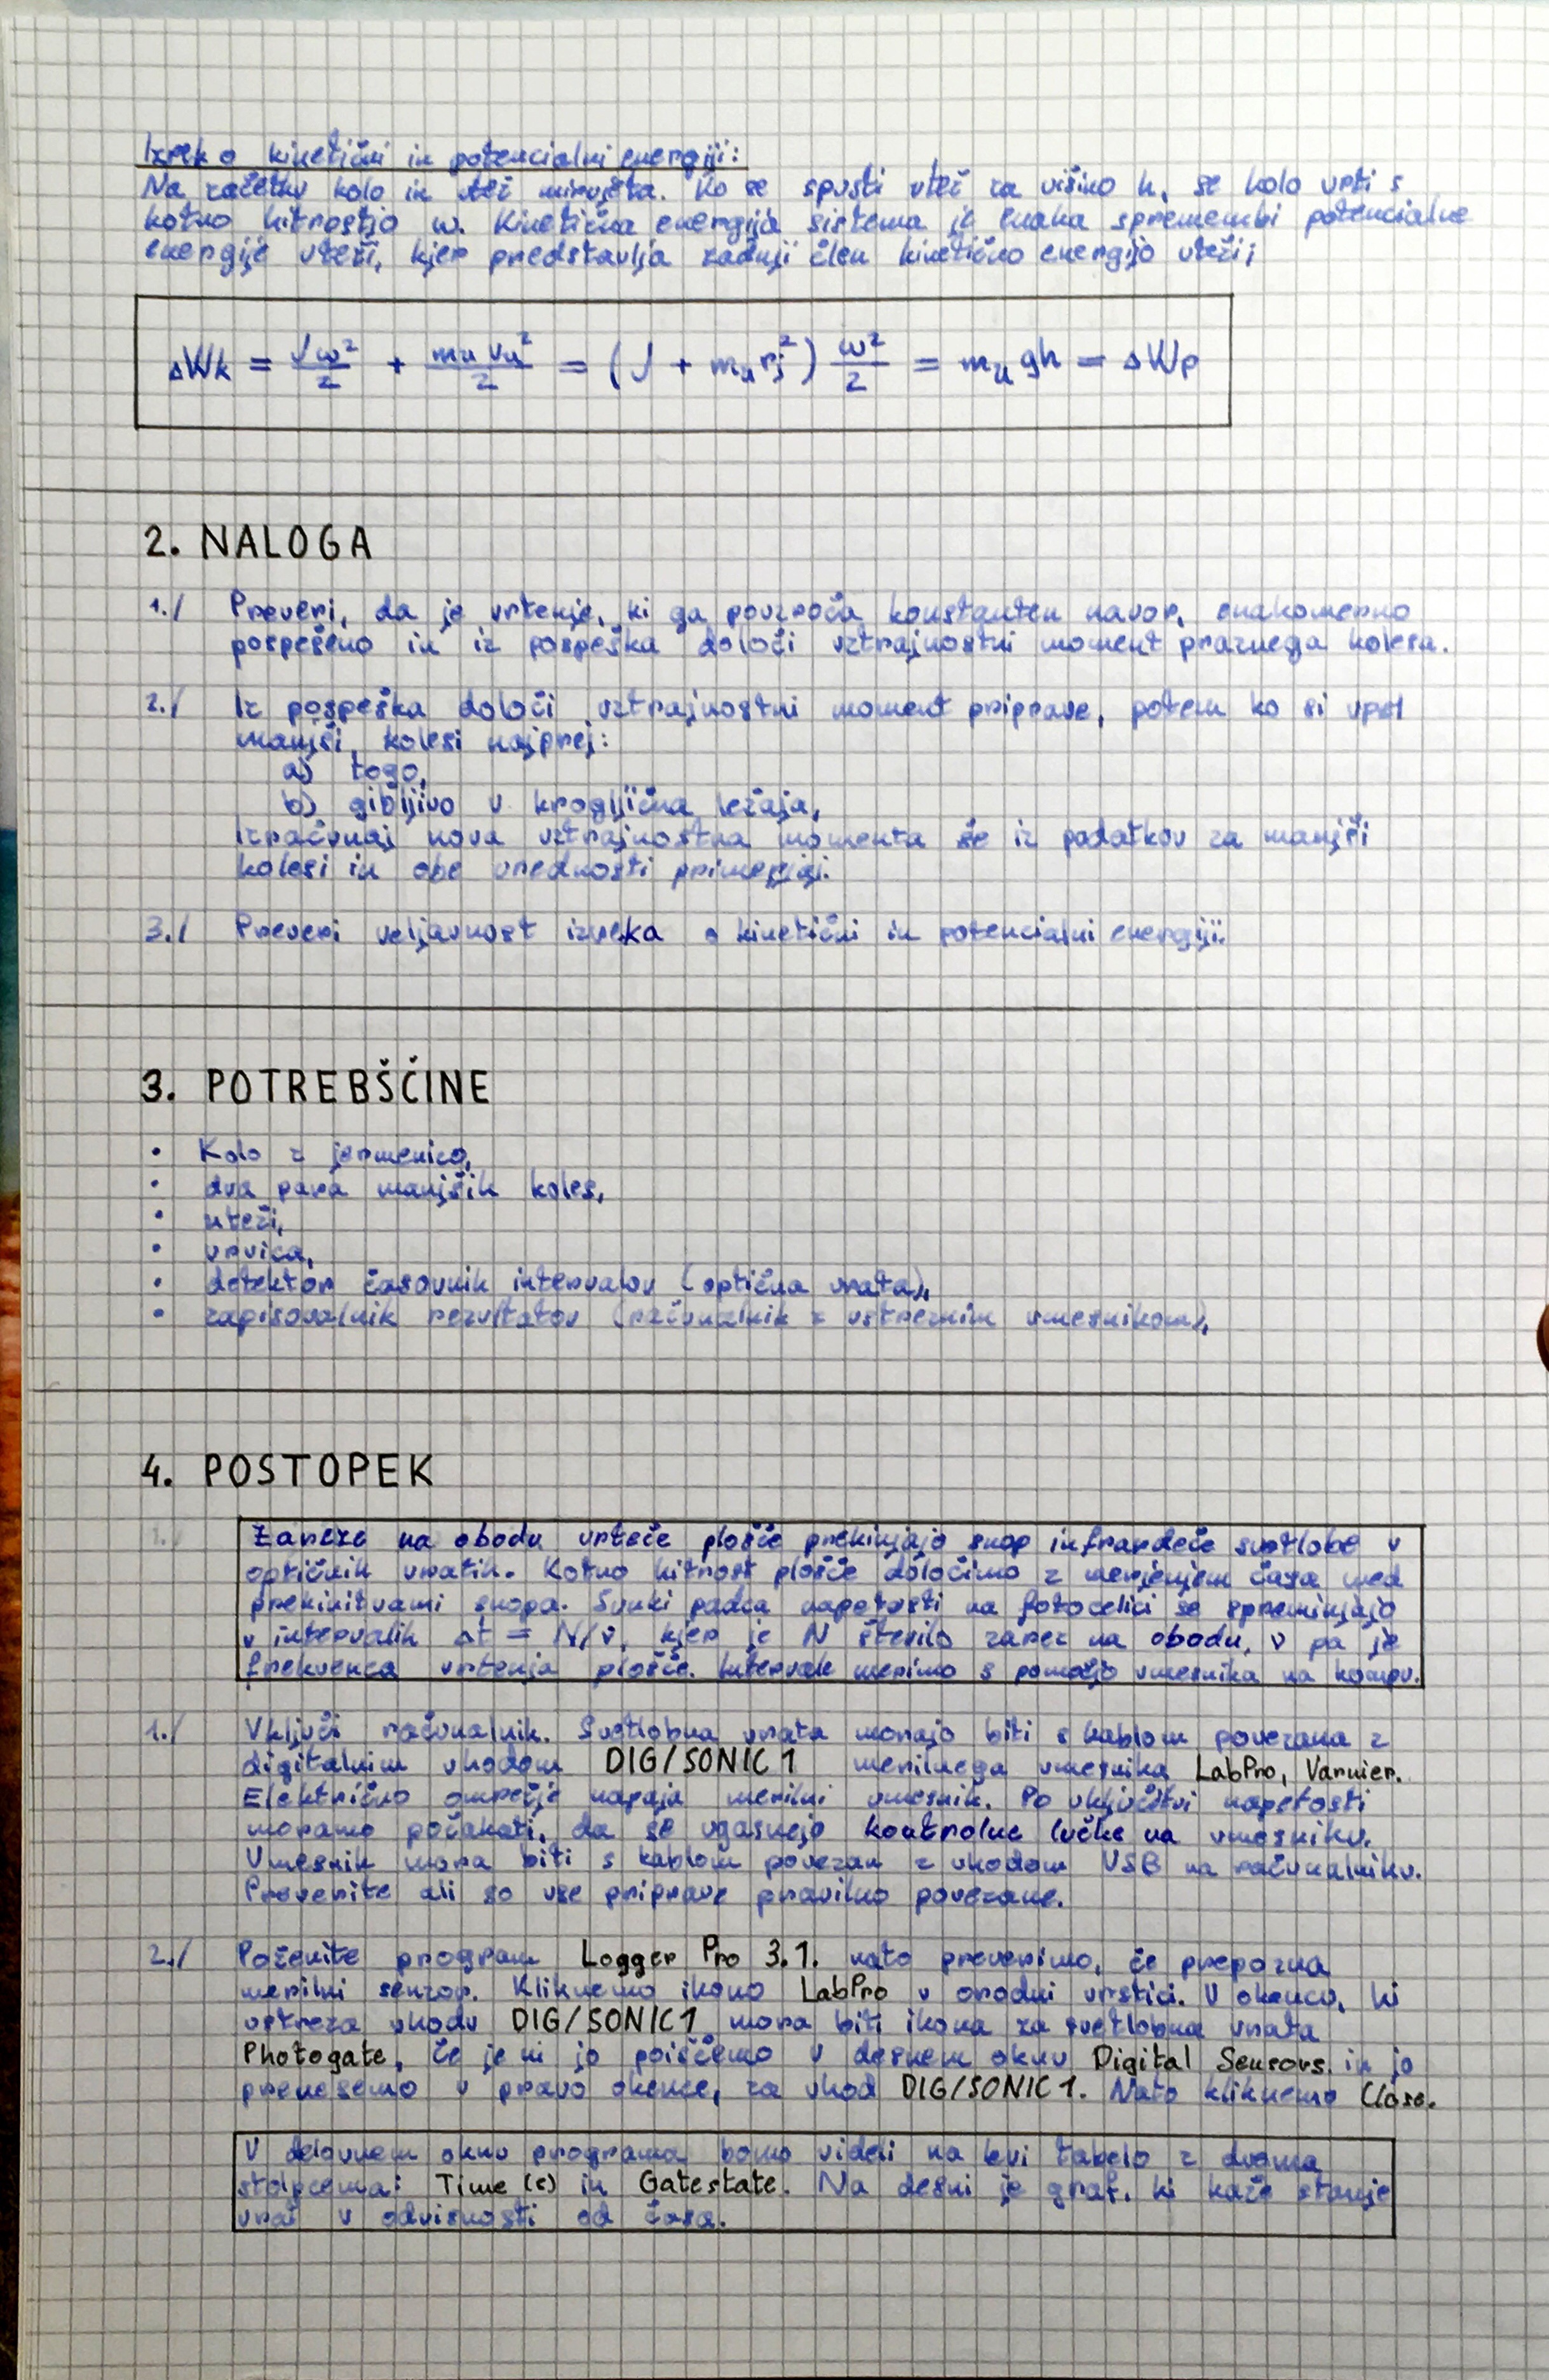 Izrek o kinetični in potencialni energiji:
Na začetku kolo in utež mirujeta. Ko se spusti utež za višino h, se kolo vrti s
kotno hitrostjo ω. Kinetična energija sistema je enaka spremembi potencialne
energije uteži, kjer predstavlja zadnji člen kinetično energijo uteži;
ΔWk = Jω²/2 + mᵤvᵤ²/2 = (J + mᵤrⱼ²) ω²/2 = mᵤgh = ΔWp
2. NALOGA
1./ Preveri, da je vrtenje, ki ga povzroča konstanten navor, enakomerno
pospešeno in iz pospeška določi vztrajnostni moment praznega kolesa.
2./ Iz pospeška določi vztrajnostni moment priprave, potem ko si vpel
manjši kolesi najprej:
a) togo,
b) gibljivo v kroglična ležaja,
izračunaj nova vztrajnostna momenta še iz podatkov za manjši
kolesi in obe vrednosti primerjaj.
3./ Preveri veljavnost izreka o kinetični in potencialni energiji.
3. POTREBŠČINE
• Kolo z jermenico,
• dva para manjših koles,
• uteži,
• vrvica,
• detektor časovnih intervalov (optična vrata),
• zapisovalnik rezultatov (računalnik z ustreznim vmesnikom),
4. POSTOPEK
1./ Zareze na obodu vrteče plošče prekinjajo snop infrardeče svetlobe v
optičnih vratih. Kotno hitrost plošče določimo z merjenjem časa med
prekinitvami snopa. Sunki padca napetosti na fotocelici se spreminjajo
v intervalih Δt = N/ν, kjer je N število zarez na obodu, ν pa je
frekvenca vrtenja plošče. Intervale merimo s pomočjo vmesnika na kompu.
1./ Vključi računalnik. Svetlobna vrata morajo biti s kablom povezana z
digitalnim vhodom DIG/SONIC1 merilnega vmesnika LabPro, Varnier.
Električno omrežje napaja merilni vmesnik. Po vključitvi napetosti
moramo počakati, da se ugasnejo kontrolne lučke na vmesniku.
Vmesnik mora biti s kablom povezan z vhodom USB na računalniku.
Preverite ali so vse priprave pravilno povezane.
2./ Poženite program Logger Pro 3.1. nato preverimo, če prepozna
merilni senzor. Kliknemo ikono LabPro v orodni vrstici. V okencu, ki
ustreza vhodu DIG/SONIC1 mora biti ikona za svetlobna vrata
Photogate, če je ni jo poiščemo v desnem oknu Digital Sensors in jo
prenesemo v pravo okence, za vhod DIG/SONIC1. Nato kliknemo Close.
V delovnem oknu programa bomo videli na levi tabelo z dvema
stolpcema: Time (s) in Gatestate. Na desni je graf, ki kaže stanje
vrat v odvisnosti od časa.